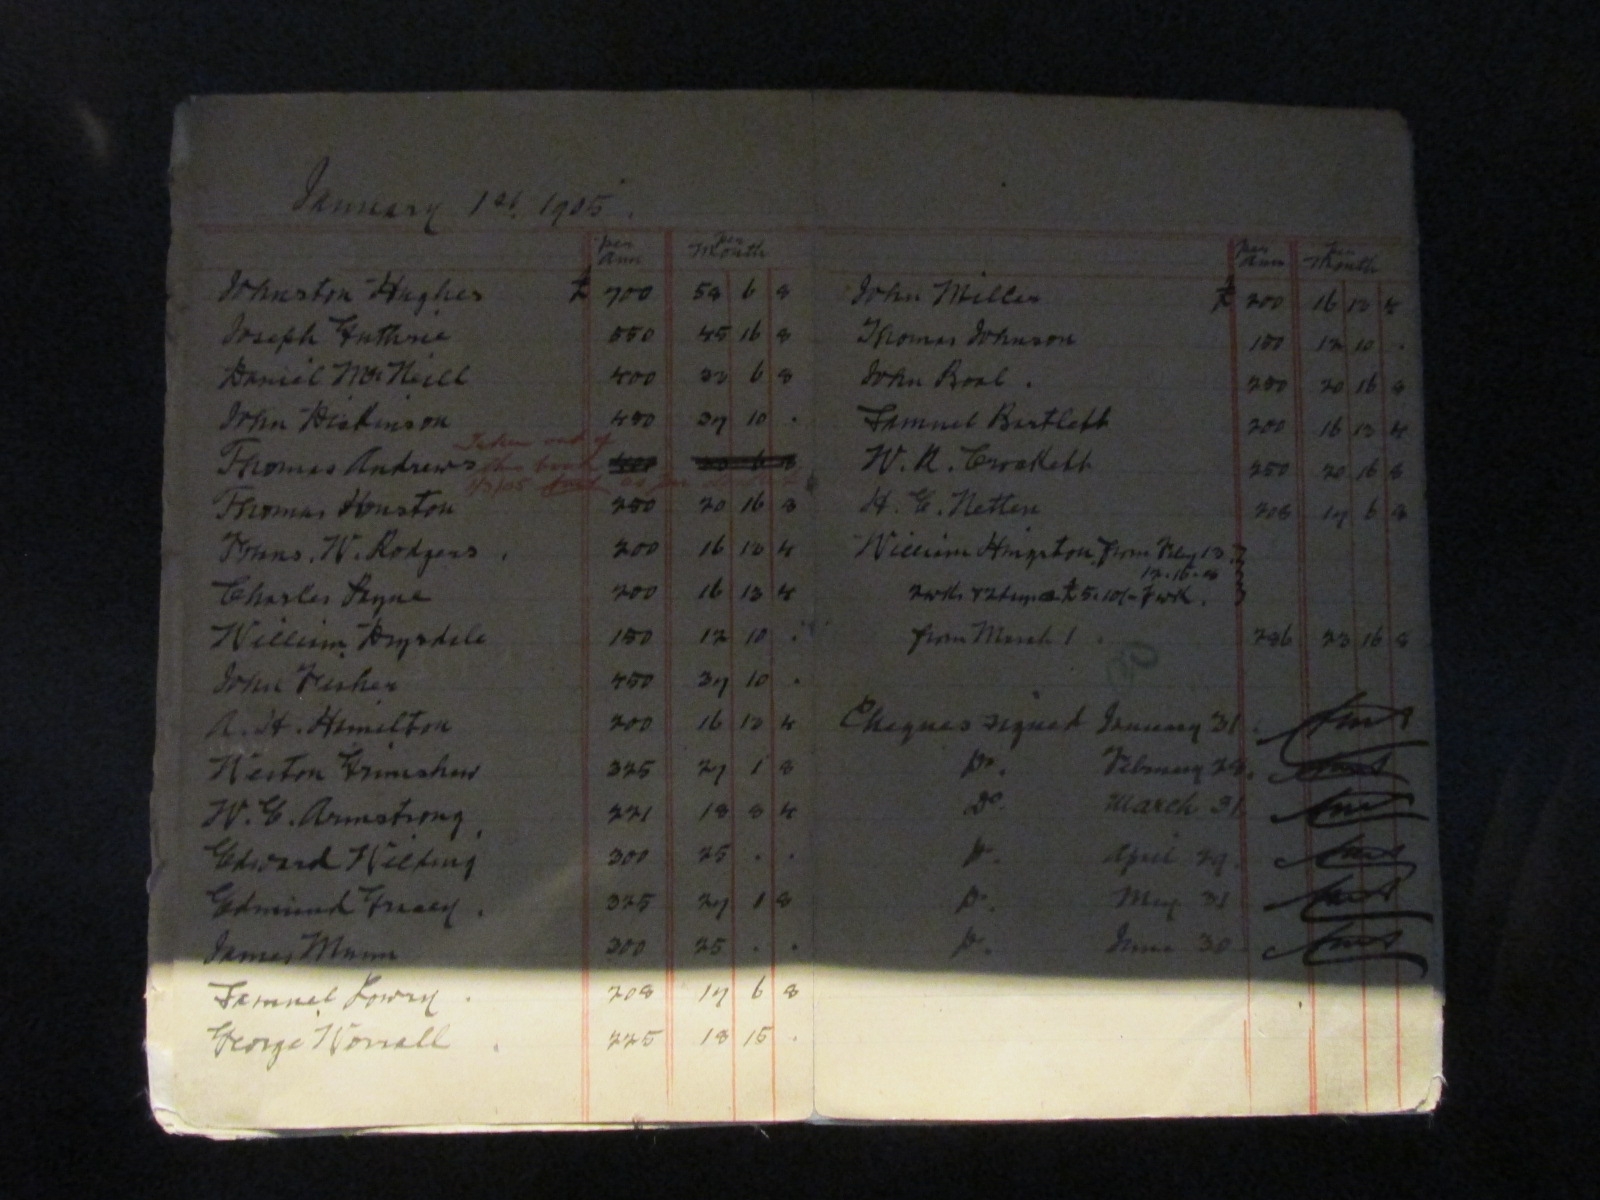 January 1st. 1905.
per Ann per Month
Johnston Hughes £ 700 58 6 8
Joseph Guthrie 550 45 16 8
Daniel McNeill 400 33 6 8
John Dickinson 450 37 10 .
Taken out of
Thomas Andrews this book 400 33 6 8
1/3/05
Thomas Houston 250 20 16 8
W. Rodgers . 200 16 13 4
Charles Payne 200 16 13 4
William Drysdale 150 12 10 .
John Fisher 450 37 10 .
A. H. Hamilton 200 16 13 4
Weston Grimshaw 325 27 1 8
W. C. Armstrong . 221 18 8 4
Edward Wilding 300 25 . .
Edmund Tracey . 325 27 1 8
James Munn 300 25 . .
Samuel Lowry . 208 17 6 8
George Worrall . 225 18 15 .
per Ann per Month
John Miller £ 200 16 13 4
Thomas Johnson 150 12 10 .
John Boal . 250 20 16 8
Samuel Bartlett 200 16 13 4
W. R. Crockett 250 20 16 8
H. E. Netten 208 17 6 8
William Hingston from Feby 13
12.16.8
2 wks & 2 days @ £5.10/- wk.
from March 1 . 286 23 16 8
Cheques signed January 31 .
Do. February 28.
Do. March 31
Do. April 29.
Do. May 31
Do. June 30